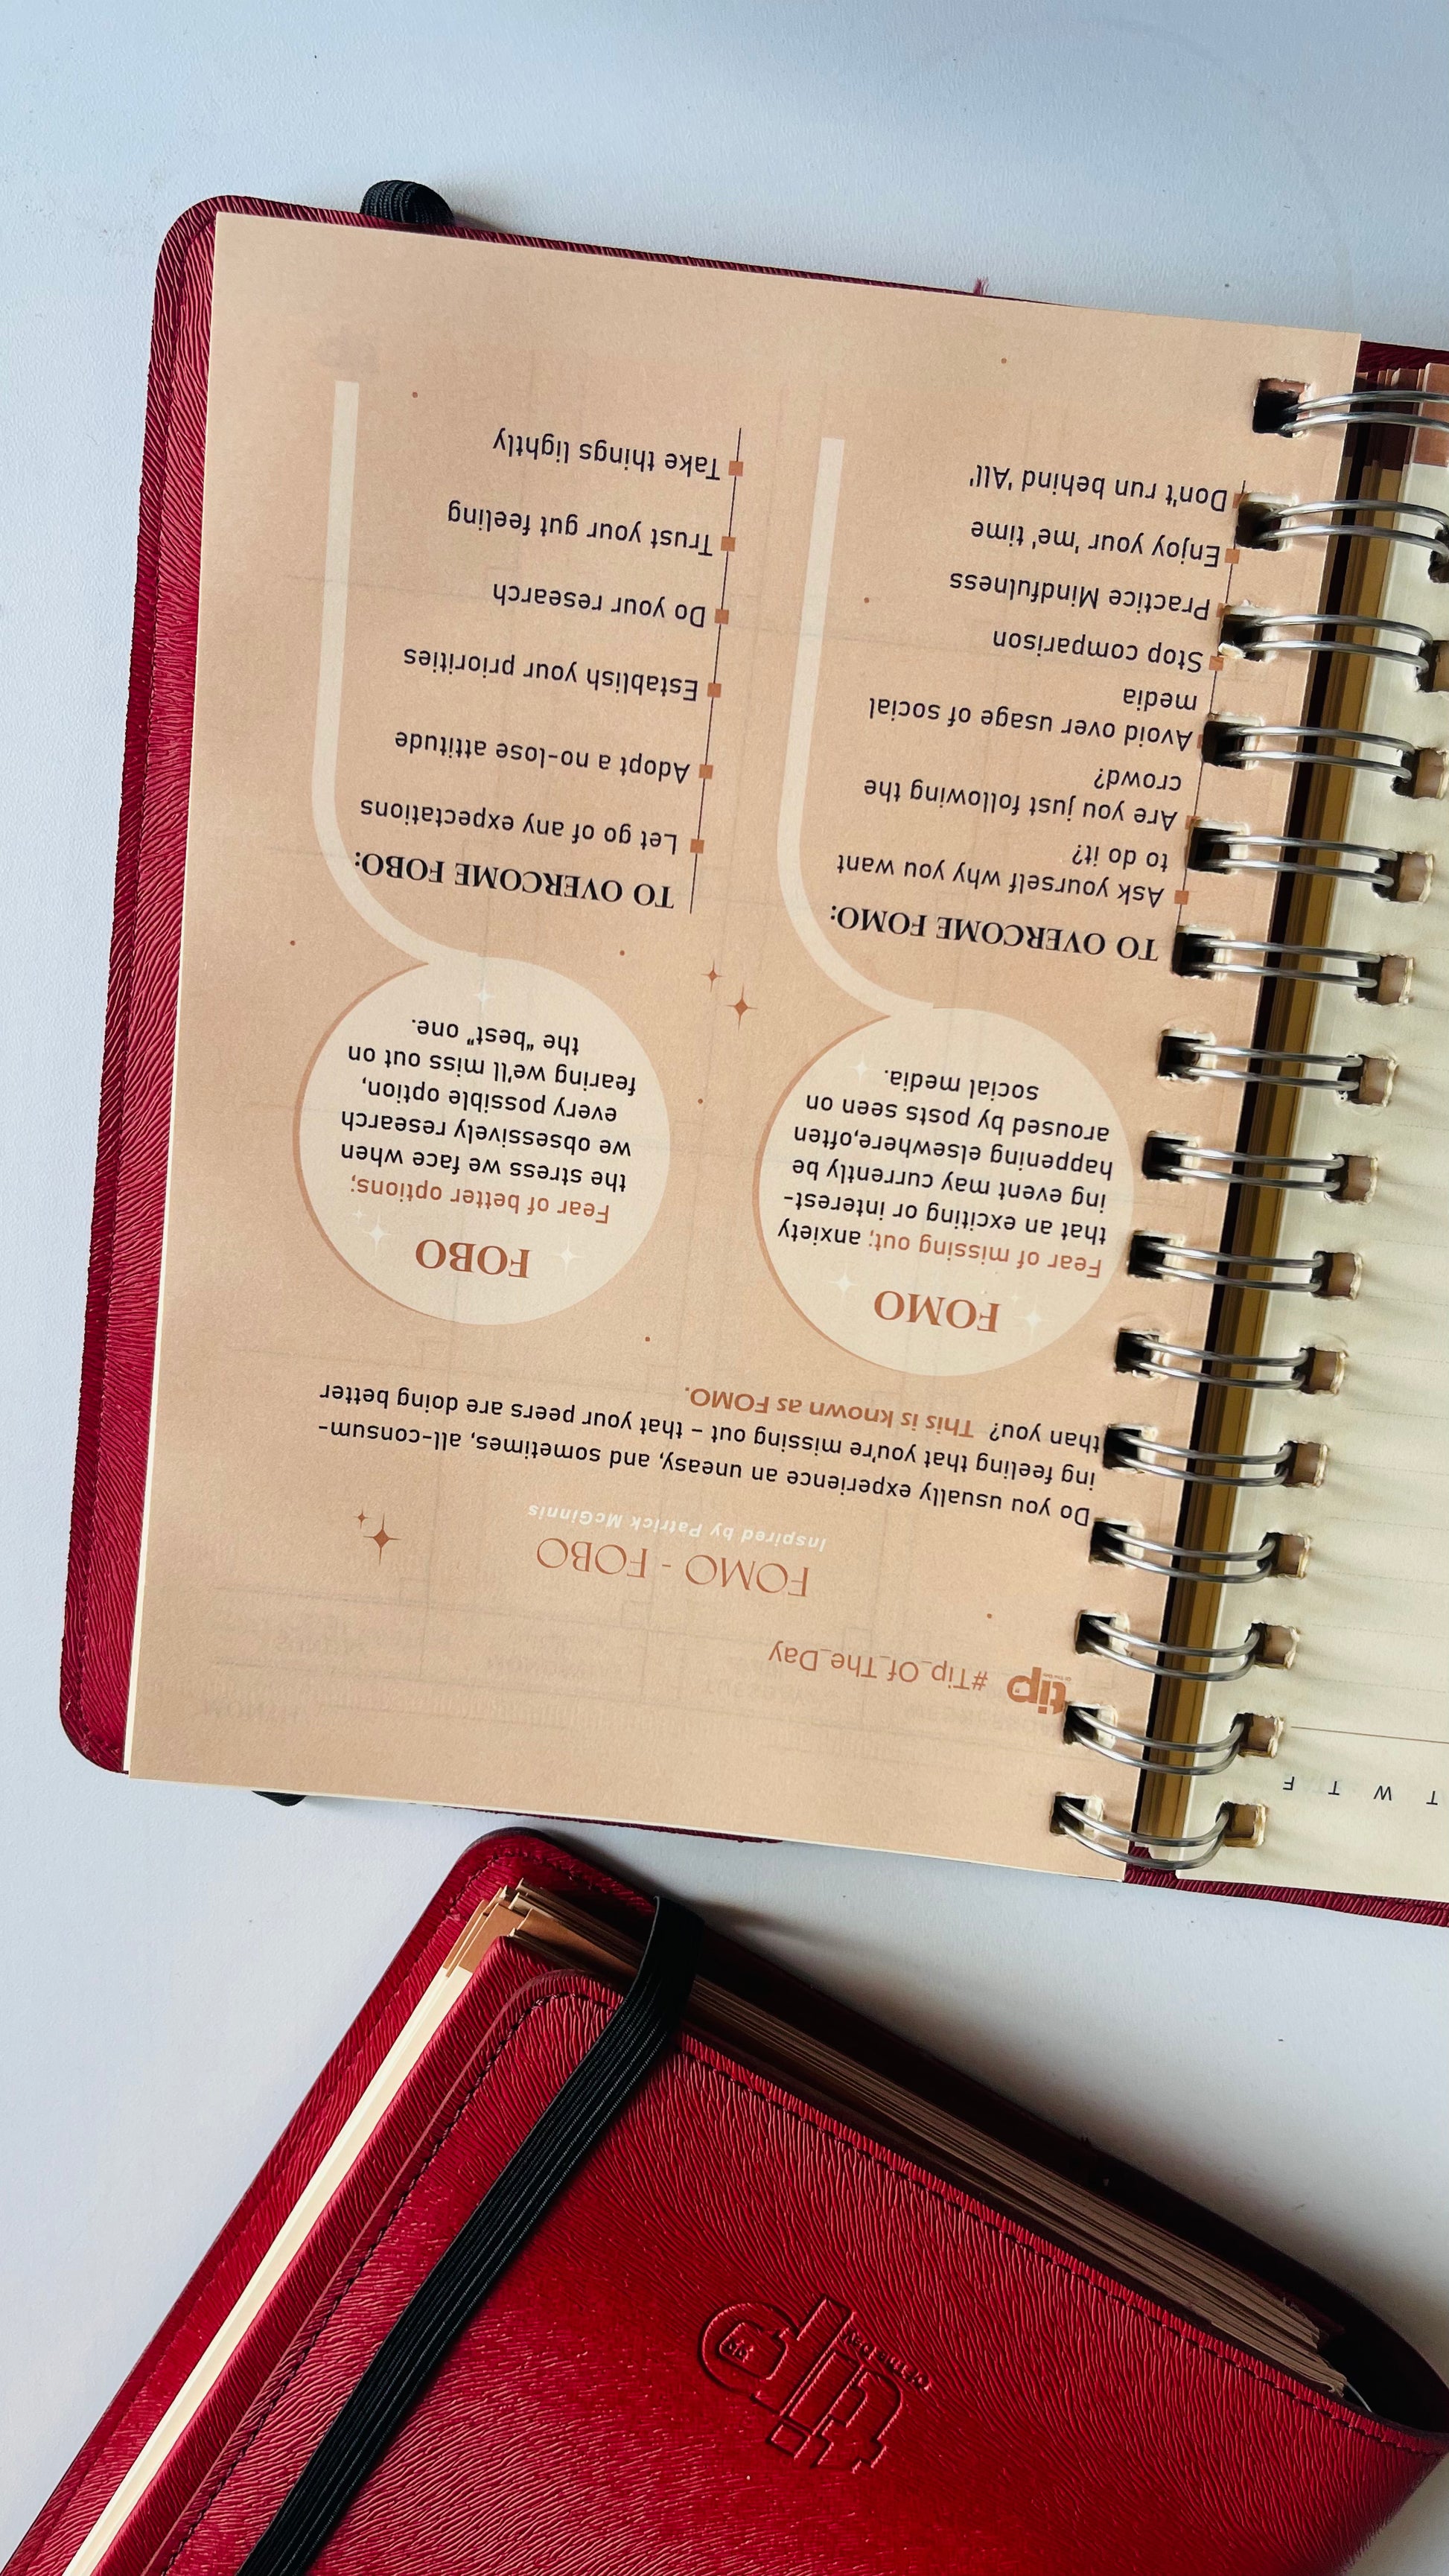 tip #Tip_Of_The_Day
FOMO - FOBO
Inspired by Patrick McGinnis
Do you usually experience an uneasy, and sometimes, all-consum-
ing feeling that you're missing out – that your peers are doing better
than you? This is known as FOMO.
FOMO
Fear of missing out; anxiety
that an exciting or interest-
ing event may currently be
happening elsewhere,often
aroused by posts seen on
social media.
TO OVERCOME FOMO:
Ask yourself why you want
to do it?
Are you just following the
crowd?
Avoid over usage of social
media
Stop comparison
Practice Mindfulness
Enjoy your 'me' time
Don't run behind 'All'
FOBO
Fear of better options;
the stress we face when
we obsessively research
every possible option,
fearing we'll miss out on
the "best" one.
TO OVERCOME FOBO:
Let go of any expectations
Adopt a no-lose attitude
Establish your priorities
Do your research
Trust your gut feeling
Take things lightly
T W T F
tip